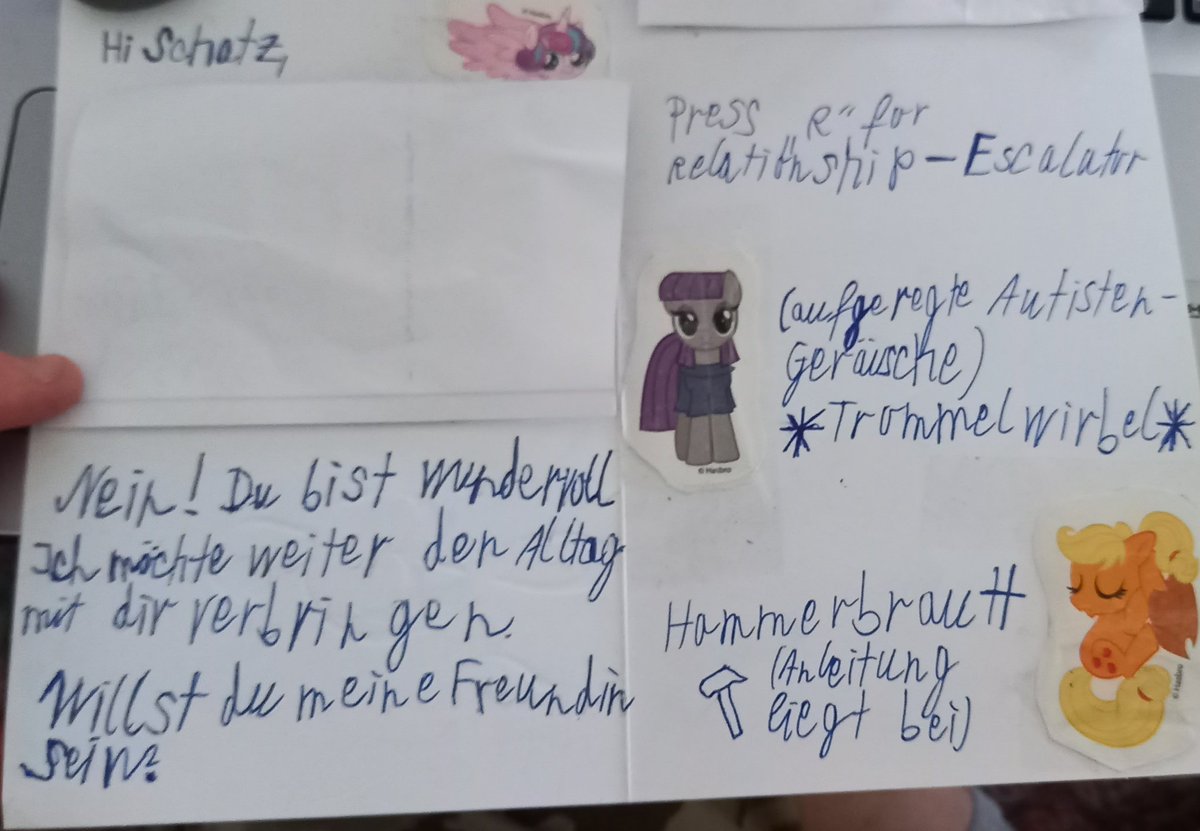 Hi Schatz,
Nein! Du bist wundervoll
Ich möchte weiter den Alltag
mit dir verbringen.
Willst du meine Freundin
sein?
Press R" for
Relatithship-Escalator
(aufgeregte Autisten-
Geräusche)
*Trommelwirbel*
© Hasbro
Hammerbrautt
(Anleitung
liegt bei)
© Hasbro